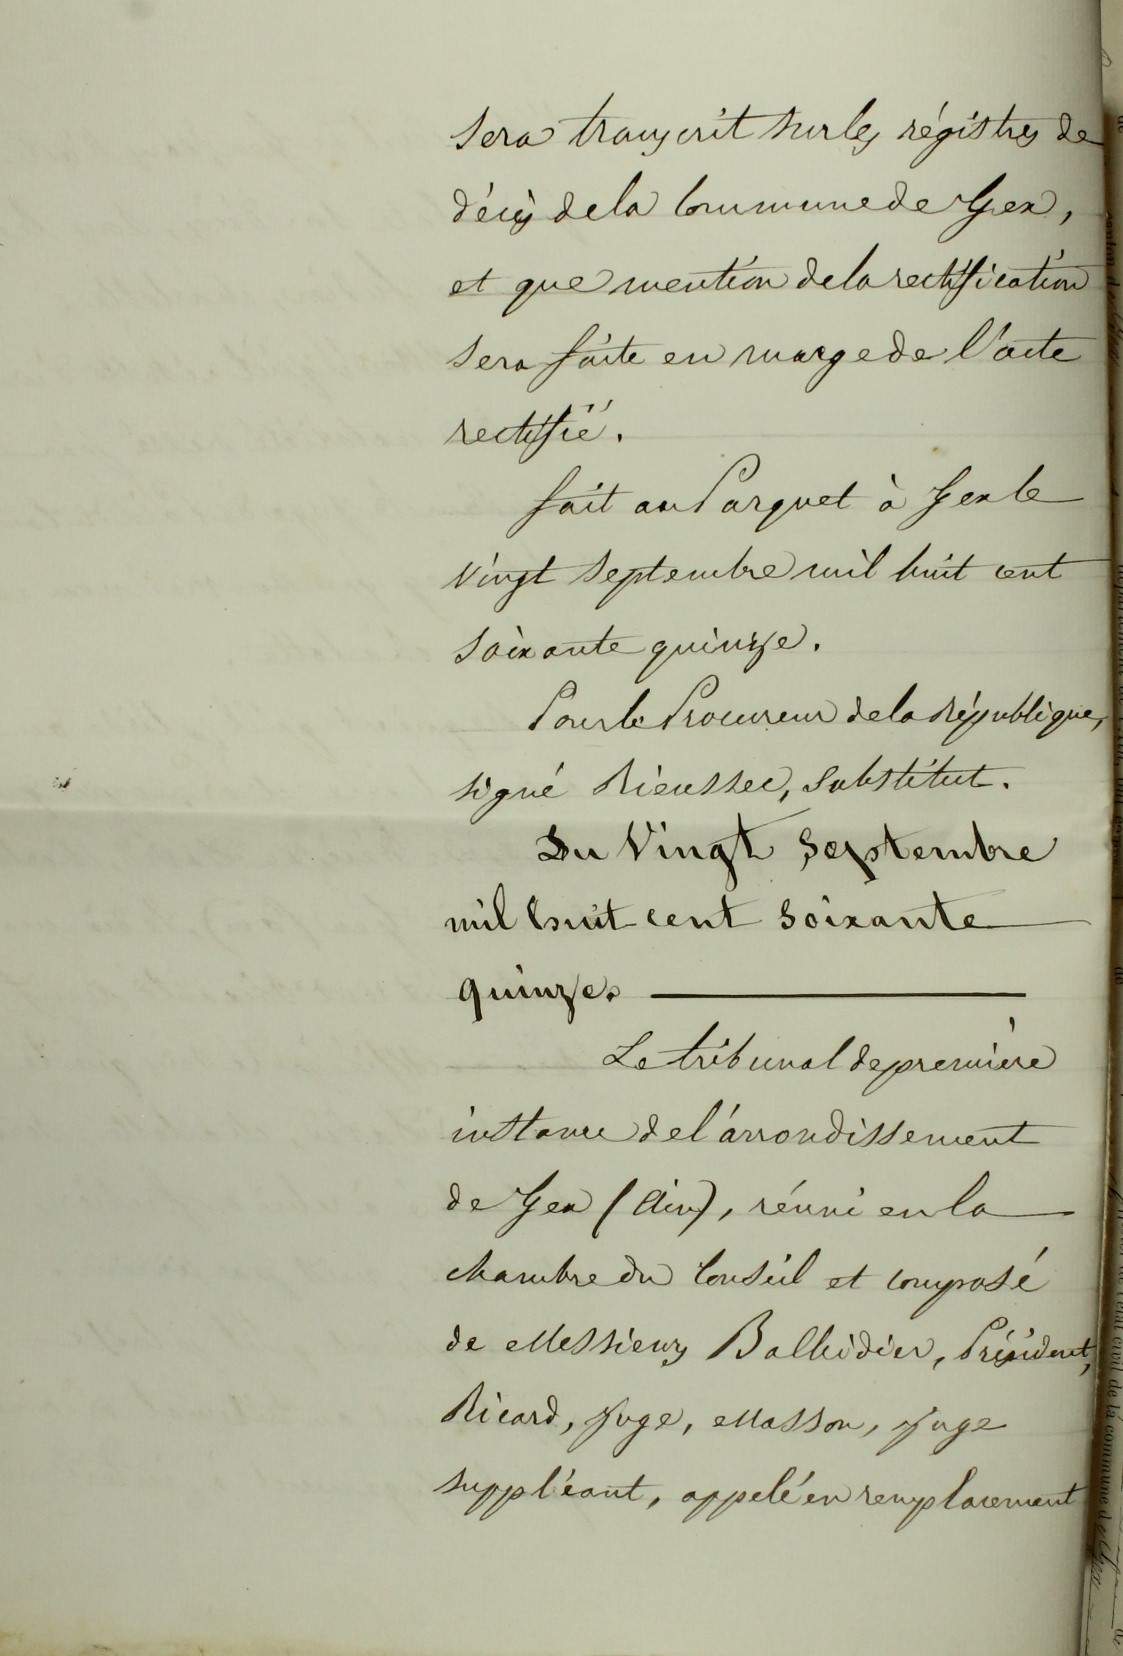 sera transcrit sur les régistres de
décès de la Commune de Gex,
et que mention de la rectification
sera faite en marge de l'acte
rectifié.
fait au Parquet à Gex le
vingt septembre mil huit cent
soixante quinze.
Pour le Procureur de la République,
signé Rieussec, substitut.
Du Vingt Septembre
mil huit cent soixante
quinze.
Le tribunal de première
instance de l'arrondissement
de Gex (Ain), réuni en la
chambre du Conseil et composé
de Messieurs Balleidier, Président,
Ricard, Juge, Masson, Juge
suppléant, appelé en remplacement